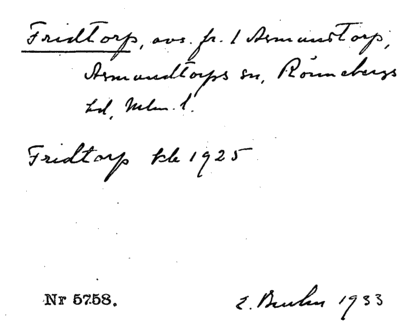 Fridtorp, avs. fr. 1 Asmundtorp,
Asmundtorps sn, Rönnebergs
hd, Mlm. l.
Fridtorp kk 1925
Nr 5758.
E. 1933